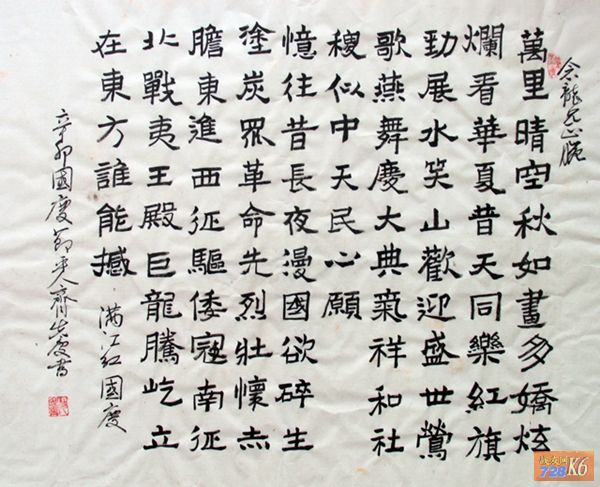 萬里晴空秋如畫多嬌炫
爛看華夏昔天同樂紅旗
勁展水笑山歡迎盛世鶯
歌燕舞慶大典氣祥和社
稷似中天民心願
憶往昔長夜漫國欲碎生
塗炭眾革命先烈壯懷赤
膽東進西征驅倭寇南征
北戰夷王殿巨龍騰屹立
在東方誰能撼
满江红國慶
辛卯國慶節
战友网
728K6